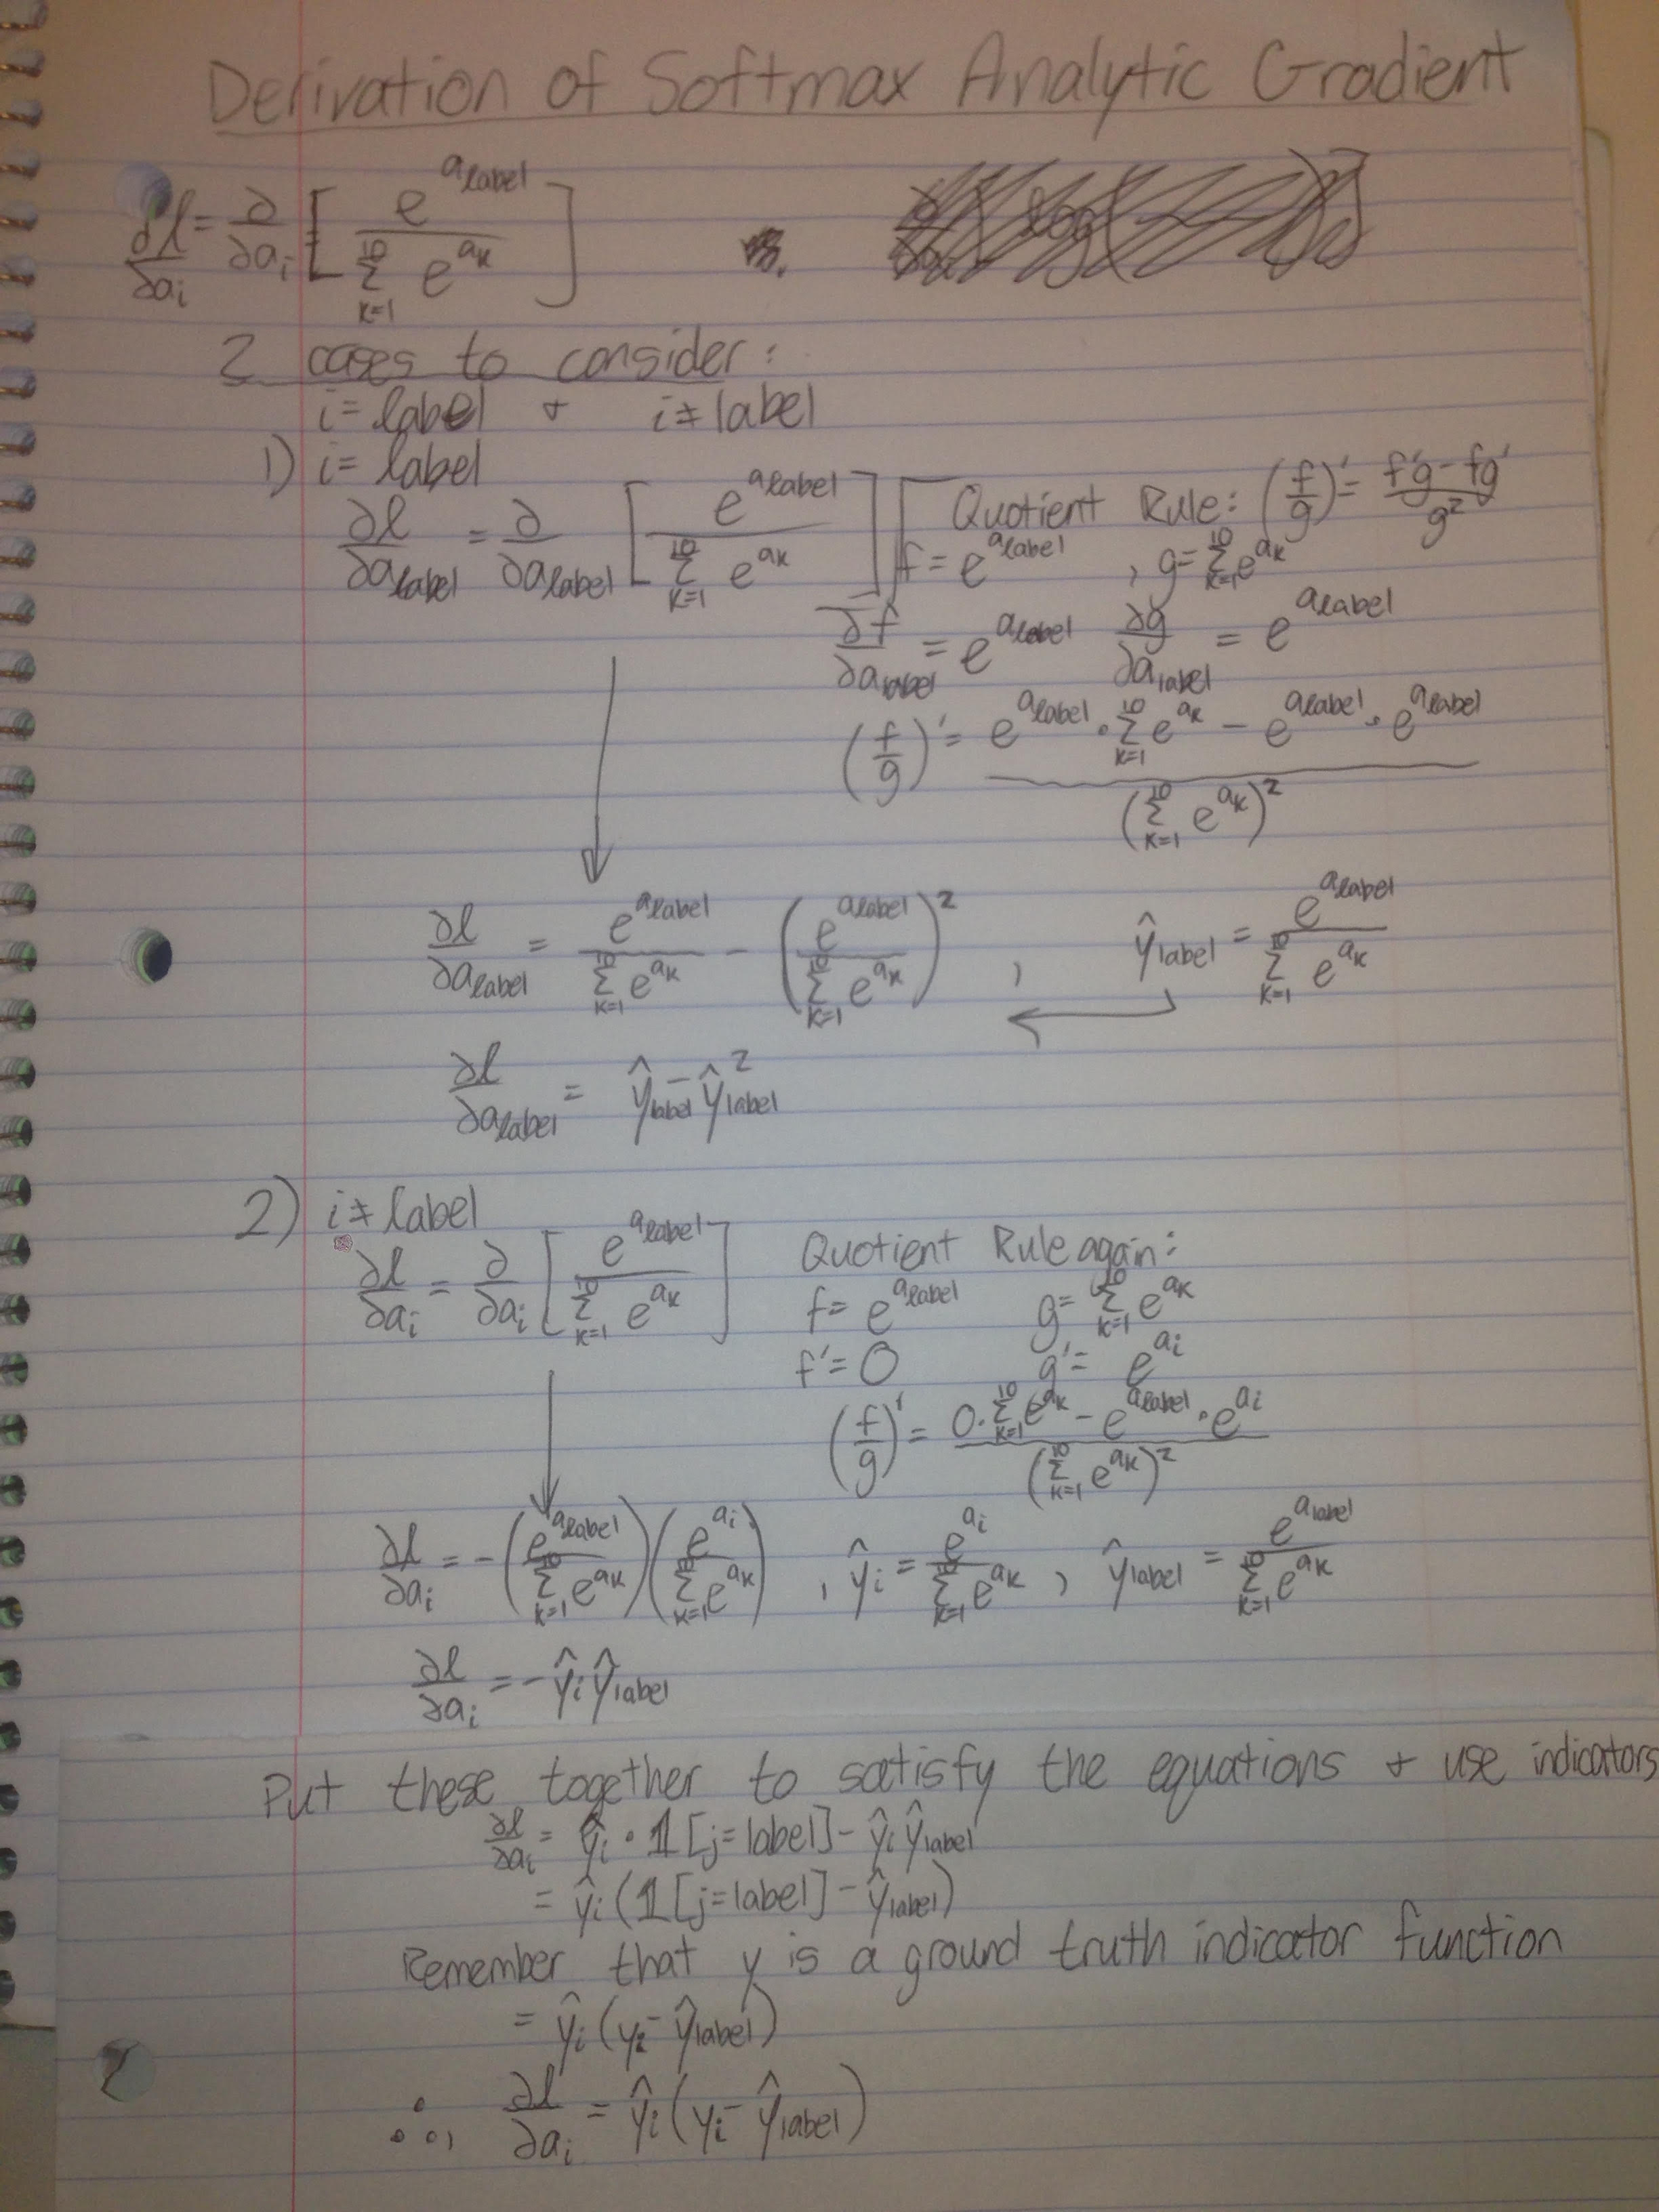 Derivation of Softmax Analytic Gradient
∂l/∂a_i = ∂/∂a_i [ e^{a_label} / Σ_{k=1}^{10} e^{a_k} ]
2 cases to consider:
i = label + i ≠ label
1) i = label
∂l/∂a_label = ∂/∂a_label [ e^{a_label} / Σ_{k=1}^{10} e^{a_k} ]
Quotient Rule: (f/g)' = (f'g - fg') / g^2
f = e^{a_label} , g = Σ_{k=1}^{10} e^{a_k}
∂f/∂a_label = e^{a_label} ∂g/∂a_label = e^{a_label}
(f/g)' = (e^{a_label} · Σ_{k=1}^{10} e^{a_k} - e^{a_label} · e^{a_label}) / (Σ_{k=1}^{10} e^{a_k})^2
∂l/∂a_label = e^{a_label} / Σ_{k=1}^{10} e^{a_k} - (e^{a_label} / Σ_{k=1}^{10} e^{a_k})^2 , ŷ_label = e^{a_label} / Σ_{k=1}^{10} e^{a_k}
∂l/∂a_label = ŷ_label - ŷ_label^2
2) i ≠ label
∂l/∂a_i = ∂/∂a_i [ e^{a_label} / Σ_{k=1}^{10} e^{a_k} ]
Quotient Rule again:
f = e^{a_label} g = Σ_{k=1}^{10} e^{a_k}
f' = 0 g' = e^{a_i}
(f/g)' = (0 · Σ_{k=1}^{10} e^{a_k} - e^{a_label} · e^{a_i}) / (Σ_{k=1}^{10} e^{a_k})^2
∂l/∂a_i = -(e^{a_label} / Σ_{k=1}^{10} e^{a_k})(e^{a_i} / Σ_{k=1}^{10} e^{a_k}) , ŷ_i = e^{a_i} / Σ_{k=1}^{10} e^{a_k} , ŷ_label = e^{a_label} / Σ_{k=1}^{10} e^{a_k}
∂l/∂a_i = -ŷ_i ŷ_label
Put these together to satisfy the equations + use indicators
∂l/∂a_i = ŷ_i · 𝟙[j=label] - ŷ_i ŷ_label
= ŷ_i (𝟙[j=label] - ŷ_label)
Remember that y is a ground truth indicator function
= ŷ_i (y_i - ŷ_label)
∴, ∂l/∂a_i = ŷ_i (y_i - ŷ_label)